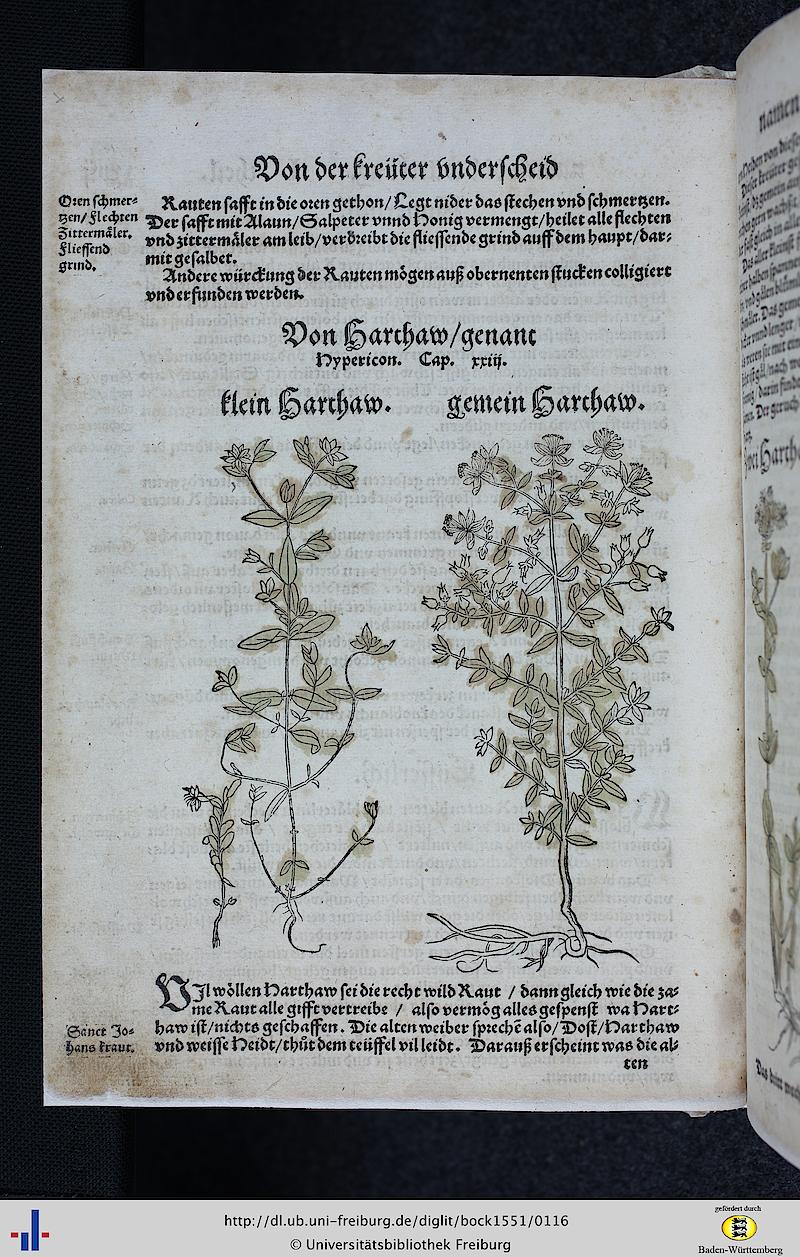 Von der kreüter vnderscheid
Oren schmer-
tzen/ Flechten
Zittermäler.
Fliessend
grind.
Rauten safft in die oren gethon/ Legt nider das stechen vnd schmertzen.
Der safft mit Alaun/ Salpeter vnnd Honig vermengt/ heilet alle flechten
vnd zittermäler am leib/ verdreibt die fliessende grind auff dem haupt/ dar-
mit gesalbet.
Andere würckung der Rauten mögen auß obernenten stucken colligiert
vnd erfunden werden.
Von Harthaw/ genant
Hypericon. Cap. xxiij.
klein Harthaw. gemein Harthaw.
VIl wöllen Harthaw sei die recht wild Raut / dann gleich wie die za-
me Raut alle gifft vertreibe / also vermög alles gespenst wa Hart-
haw ist/ nichts geschaffen. Die alten weiber sprechē also/ Dost/ Harthaw
vnd weisse Heidt/ thůt dem teüffel vil leidt. Darauß erscheint was die al-
ten
Sanct Jo-
hans kraut.
namen
http://dl.ub.uni-freiburg.de/diglit/bock1551/0116
© Universitätsbibliothek Freiburg
gefördert durch
Baden-Württemberg